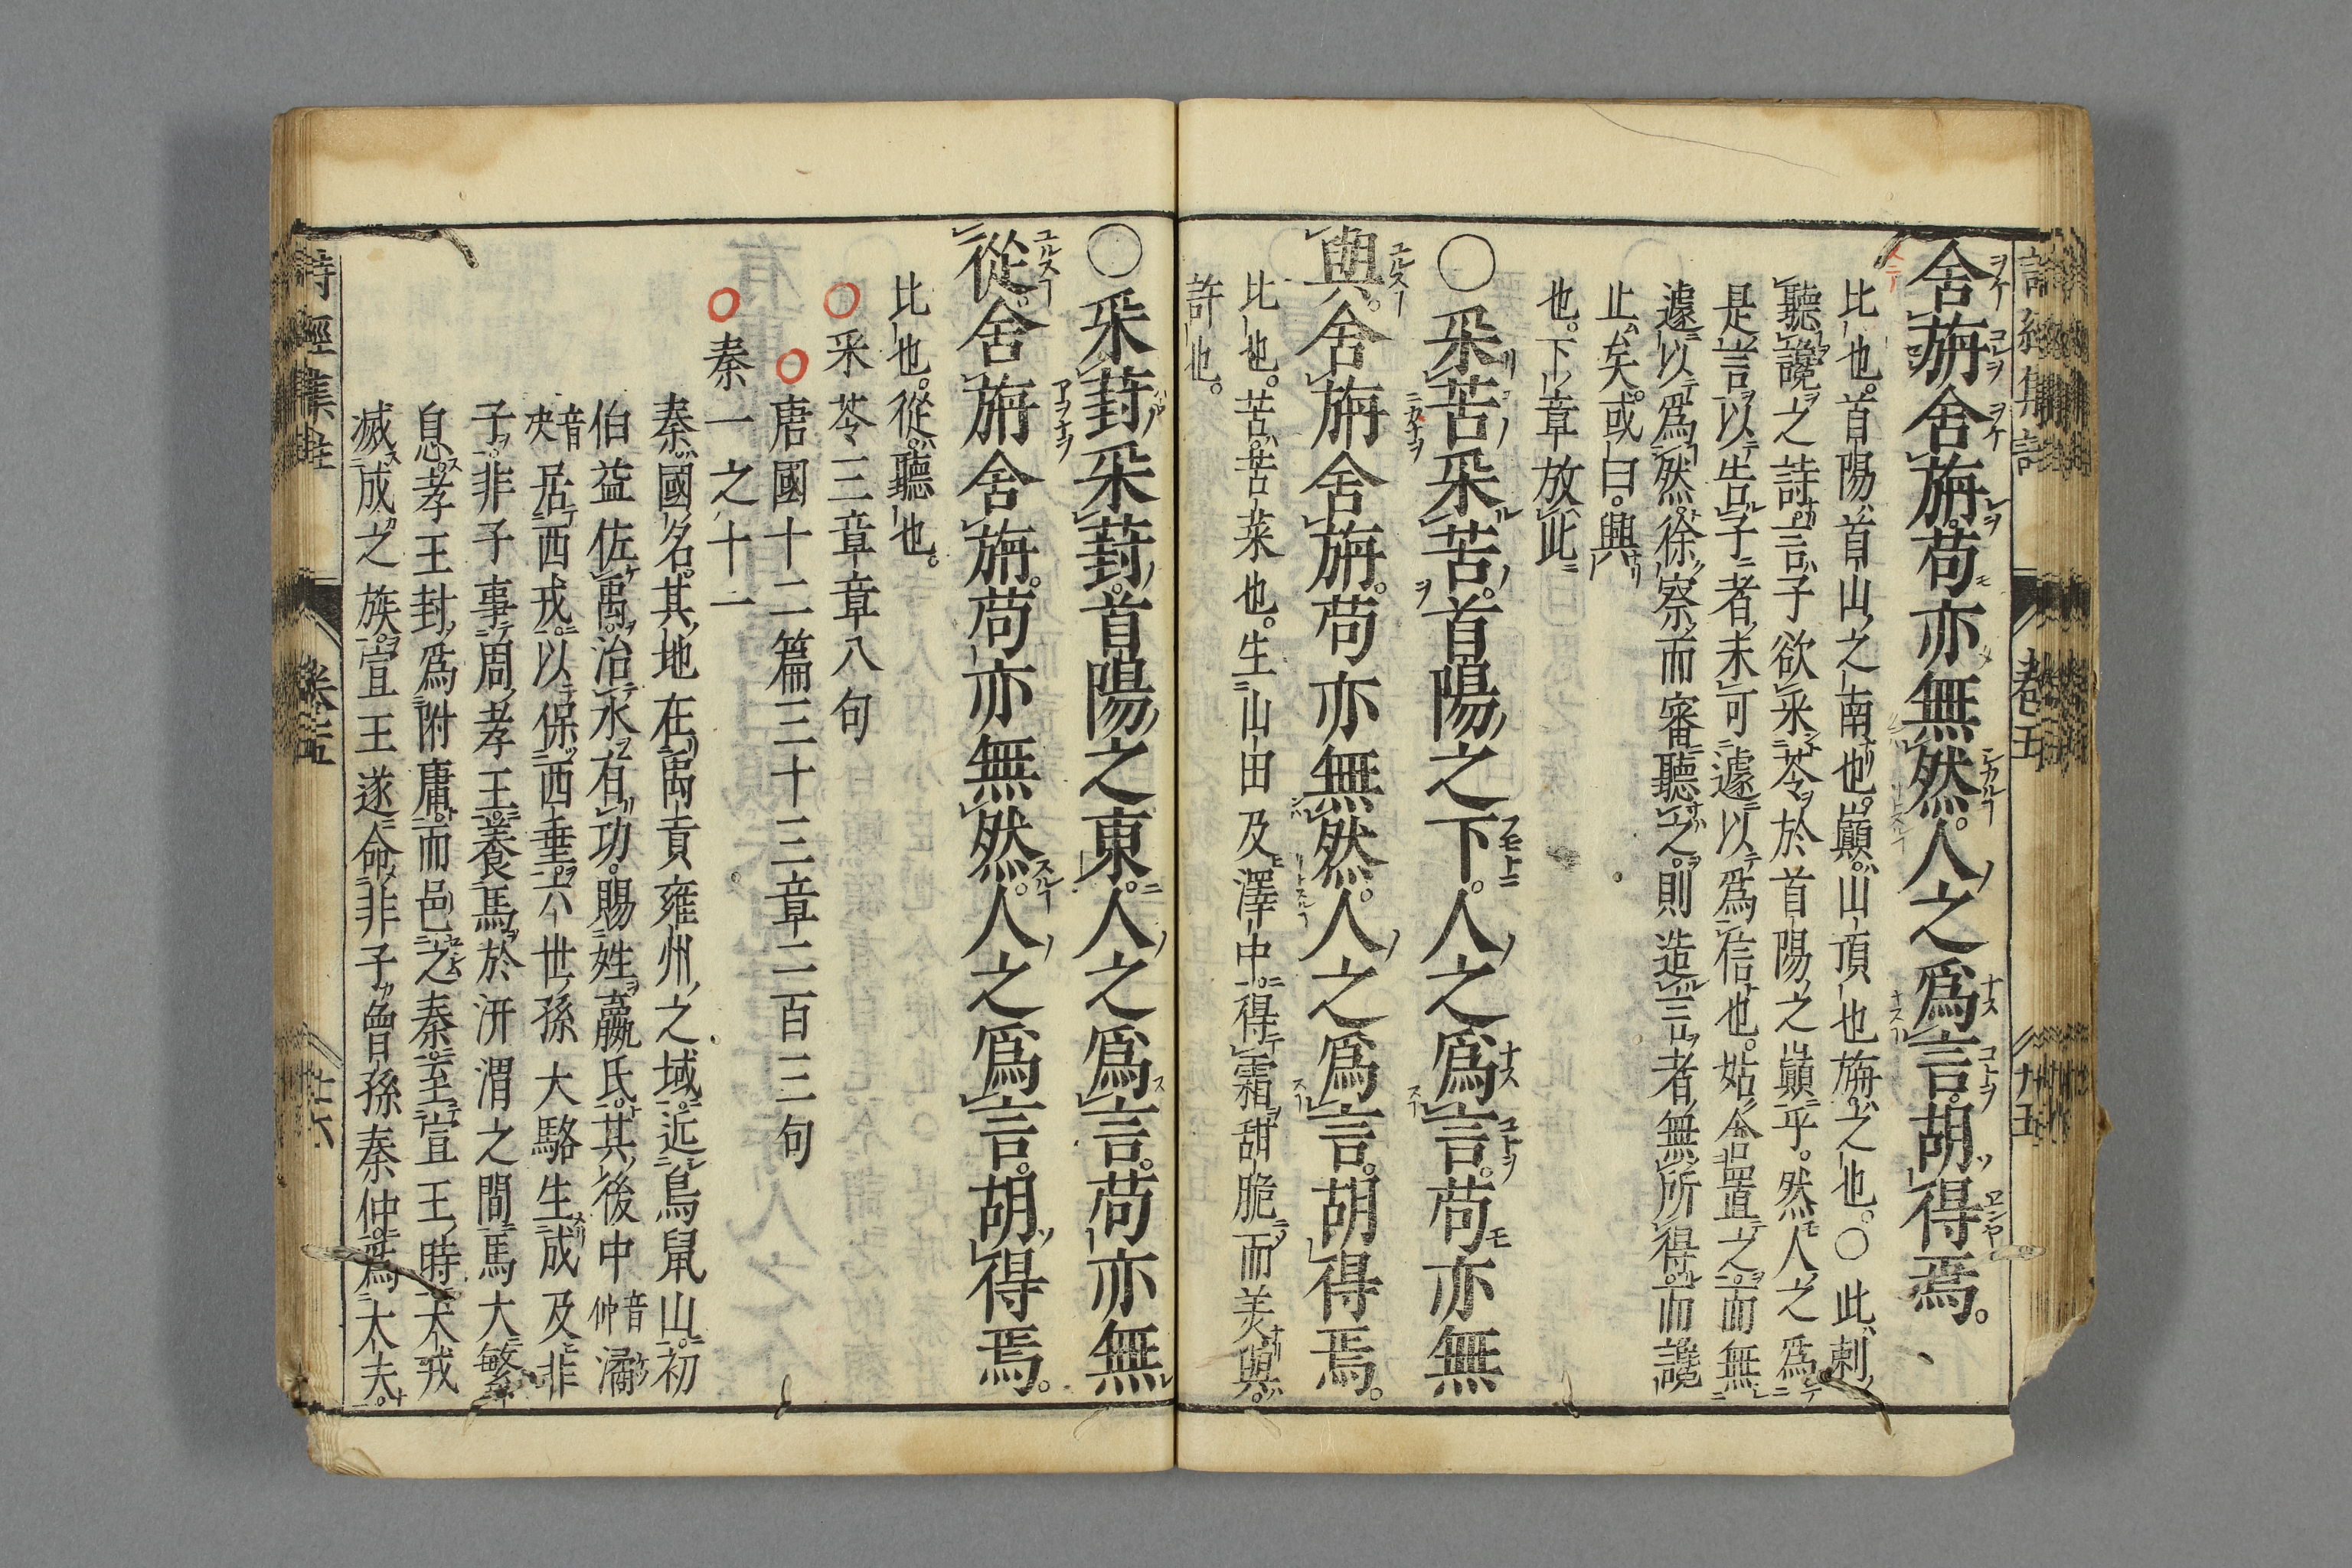 詩經集註 卷五 廿五
舍旃舍旃。苟亦無然。人之爲言。胡得焉。
比也。首陽首山之南也。巓山頂也。旃之也。○此刺
聽讒之詩。言子欲采苓於首陽之巓乎。然人之爲
是言以告子者。未可遽以爲信也。姑舍置之。而無
遽以爲然。徐察而審聽之。則造言者無所得。而讒
止矣。或曰。興
也。下章放此
○采苦采苦。首陽之下。人之爲言。苟亦無
與。舍旃舍旃。苟亦無然。人之爲言。胡得焉。
比也。苦苦菜也。生山田及澤中。得霜甜脆而美。與
許也。
○采葑采葑。首陽之東。人之爲言。苟亦無
從。舍旃舍旃。苟亦無然。人之爲言。胡得焉。
比也。從聽也。
○采苓三章章八句
○唐國十二篇三十三章二百三句
○秦一之十一
秦國名。其地在禹貢雍州之域。近鳥鼠山。初
伯益佐禹。治水有功。賜姓嬴氏。其後中音仲潏
音决居西戎。以保西垂。六世孫大駱生成及非
子。非子事周孝王。養馬於汧渭之間。馬大繁
息。孝王封爲附庸。而邑之秦。至宣王時。犬戎
滅成之族。宣王遂命非子曾孫秦仲。爲大夫
詩經集註 卷五 廿六